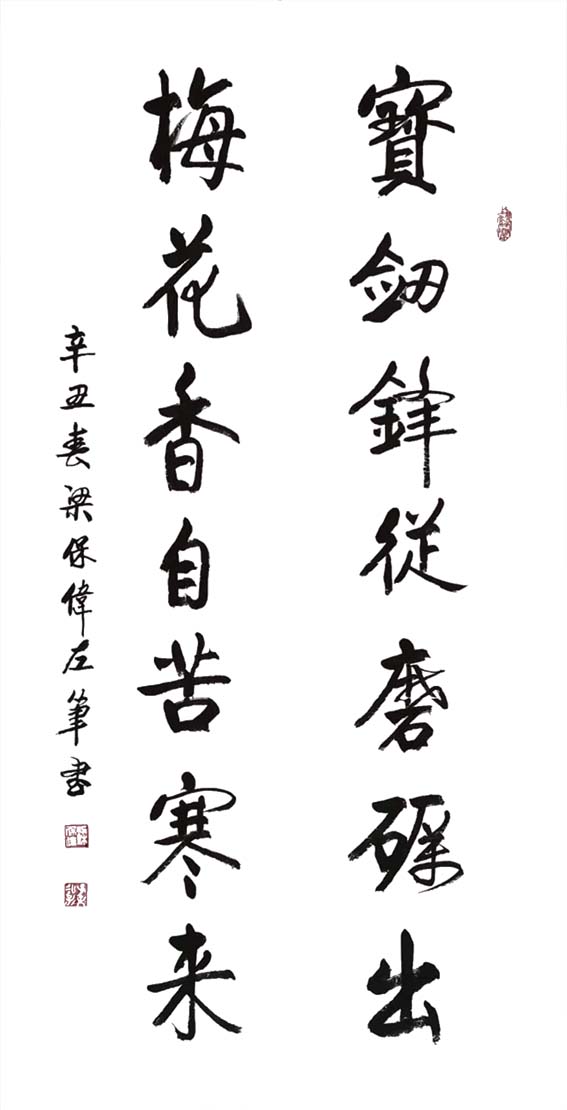 寳劒鋒從磨礪出
梅花香自苦寒来
辛丑春梁保偉左筆書